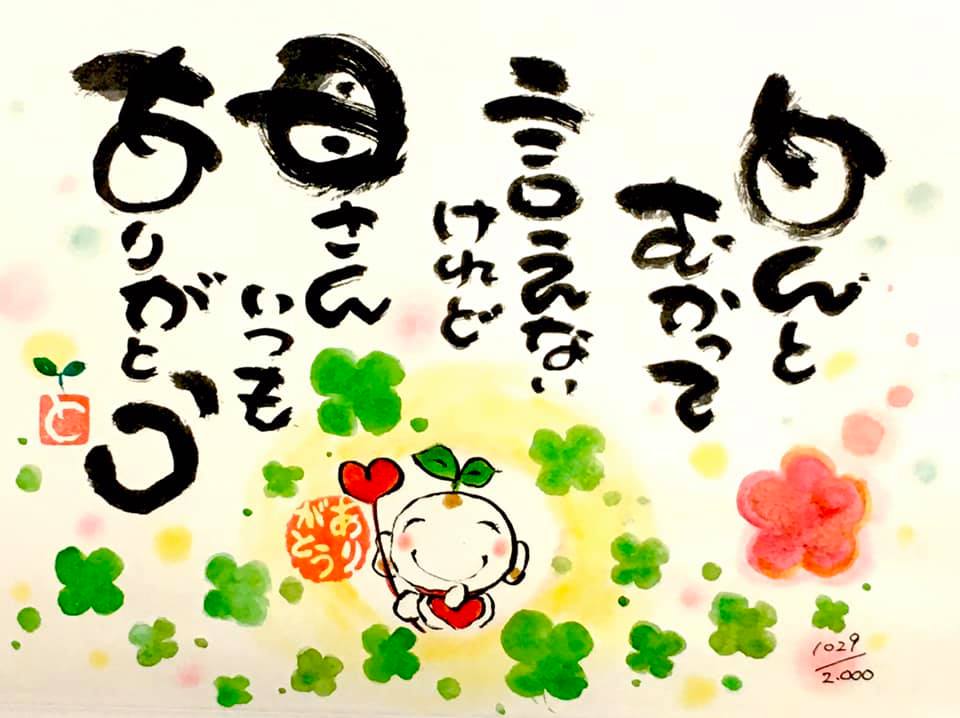 めんと
むかって
言えない
けれど
母さん
いつも
ありがとう
と
あり
がとう
1029
2.000